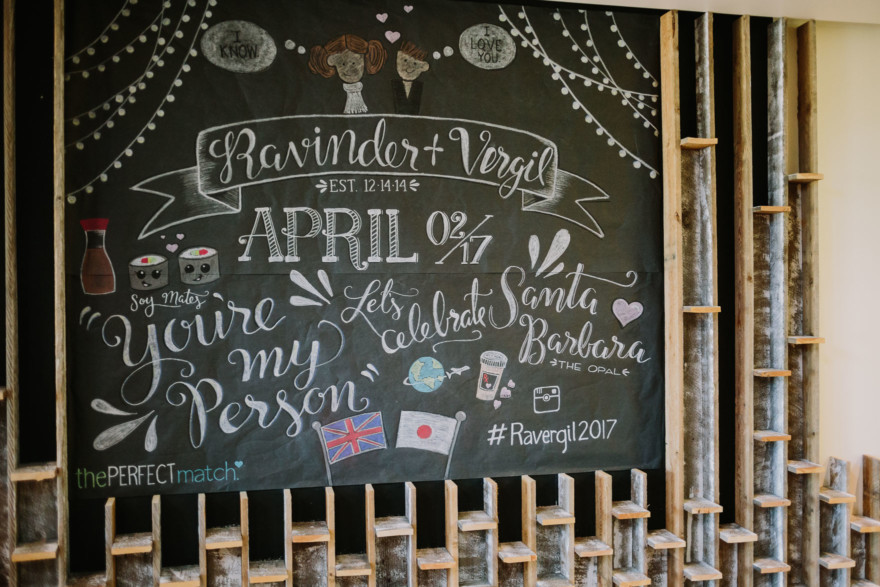 I KNOW
I LOVE YOU
Ravinder + Vergil
EST. 12·14·14
APRIL 02/17
Soy Mates
"You're
my
Person"
Let's
celebrate
Santa
Barbara
THE OPAL
#Ravergil2017
thePERFECTmatch.